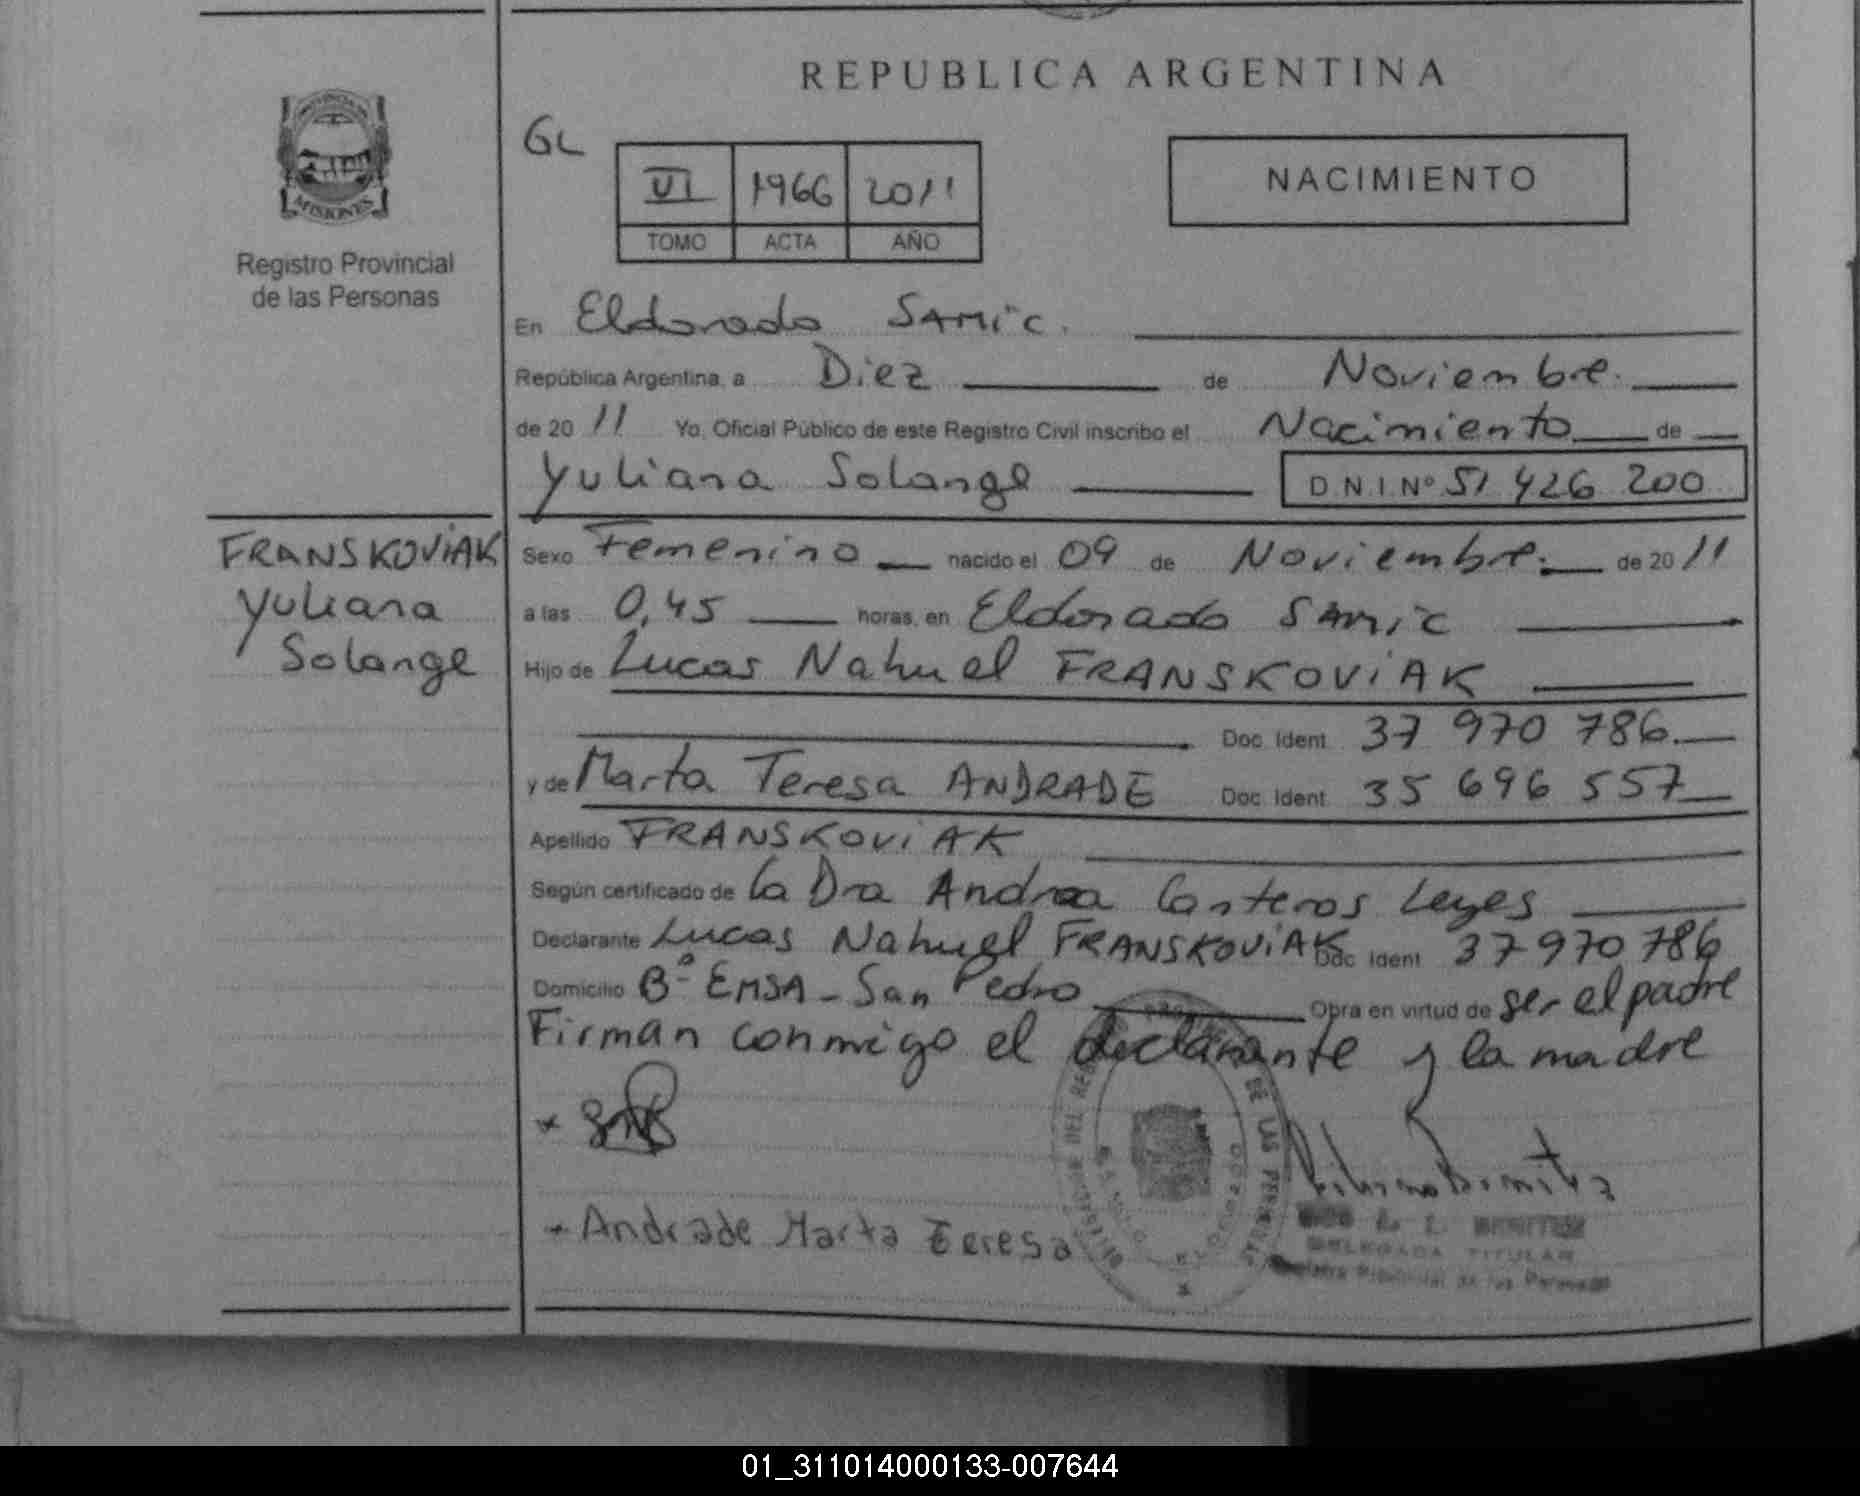 REPUBLICA ARGENTINA
GL
VI 1966 2011
TOMO ACTA AÑO
NACIMIENTO
MISIONES
Registro Provincial
de las Personas
En Eldorado SAMiC.
República Argentina, a Diez de Noviembre.
de 20 11 Yo, Oficial Público de este Registro Civil inscribo el Nacimiento de
Yuliana Solange D.N.I.Nº 51 426 200
FRANSKOViAK
Yuliana
Solange
Sexo Femenino nacido el 09 de Noviembre. de 20 11
a las 0,45 horas, en Eldorado SAMiC
Hijo de Lucas Nahuel FRANSKOViAK
Doc. Ident. 37 970 786.
y de Marta Teresa ANDRADE Doc. Ident. 35 696 557
Apellido FRANSKOViAK
Según certificado de la Dra Andrea Conteros Leyes
Declarante Lucas Nahuel FRANSKOViAK Doc. Ident. 37 970 786
Domicilio Bº EMSA - San Pedro Obra en virtud de ser el padre
Firman conmigo el declarante y la madre
DE LAS PERSONAS
ELDORADO
Andrade Marta Teresa
DELEGADA TITULAR
Registro Provincial de las Personas
01_311014000133-007644